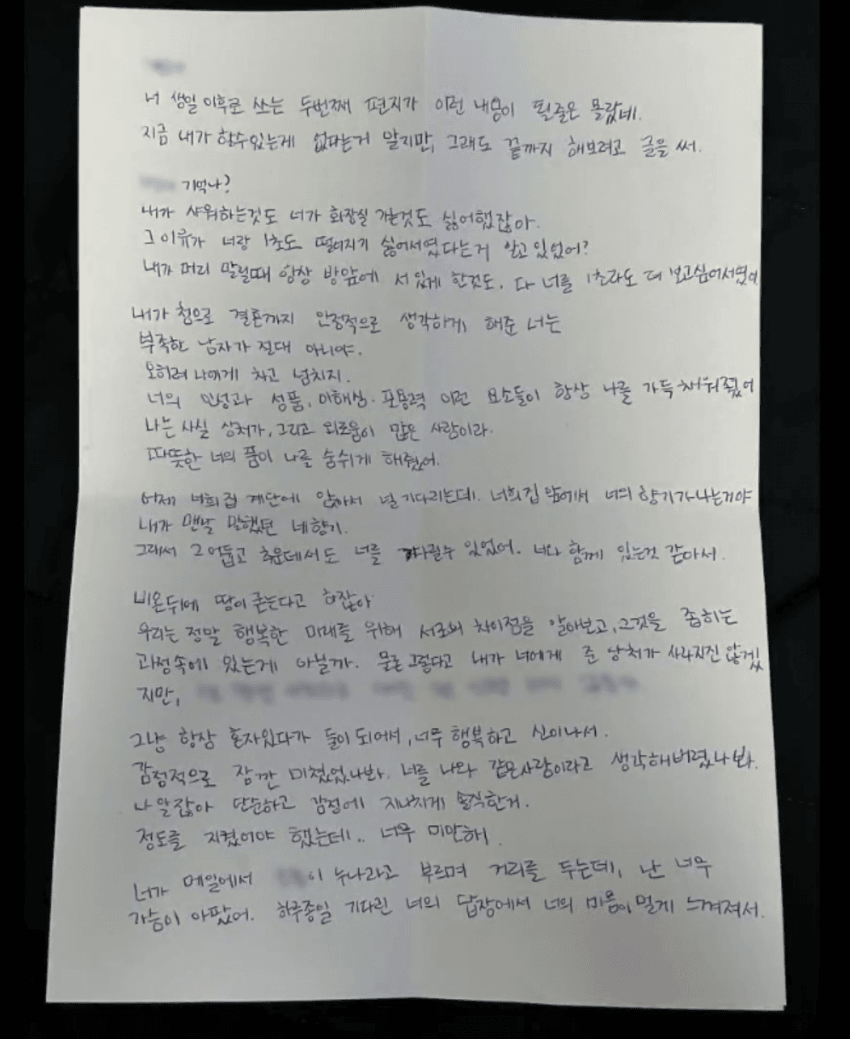 너 생일 이후로 쓰는 두번째 편지가 이런 내용이 될줄은 몰랐네.
지금 내가 할수있는게 없다는거 알지만, 그래도 끝까지 해보려고 글을 써.
기억나?
내가 샤워하는것도 너가 화장실 가는것도 싫어했잖아.
그 이유가 너랑 1초도 떨어지기 싫어서였다는거 알고 있었어?
내가 머리 말릴때 항상 방앞에 서있게 한것도. 다 너를 1초라도 더 보고싶어서였어
내가 첨으로 결혼까지 안정적으로 생각하게 해준 너는
부족한 남자가 절대 아니야.
오히려 나에게 차고 넘치지.
너의 인성과 성품, 이해심. 포용력 이런 요소들이 항상 나를 가득 채워줬어
나는 사실 상처가, 그리고 외로움이 많은 사람이라.
따뜻한 너의 품이 나를 숨쉬게 해줬어.
어제 너희집 계단에 앉아서 널 기다리는데. 너희집 앞에서 너의 향기가나는거야
내가 맨날 말했던 네향기.
그래서 그 어둡고 추운데서도 너를 기다릴수 있었어. 너와 함께 있는것 같아서.
비온뒤에 땅이 굳는다고 하잖아
우리는 정말 행복한 미래를 위해 서로의 차이점을 알아보고, 그것을 좁히는
과정속에 있는게 아닐까. 물론 그렇다고 내가 너에게 준 상처가 사라지진 않겠
지만,
그냥 항상 혼자있다가 둘이 되어서, 너무 행복하고 신이나서.
감정적으로 잠깐 미쳤었나봐. 너를 나와 같은사람이라고 생각해버렸나봐.
나 알잖아 단순하고 감정에 지나치게 솔직한거.
정도를 지켰어야 했는데.. 너무 미안해.
너가 메일에서 이 누나라고 부르며 거리를 두는데, 난 너무
가슴이 아팠어. 하루종일 기다린 너의 답장에서 너의 마음이 멀게 느껴져서.